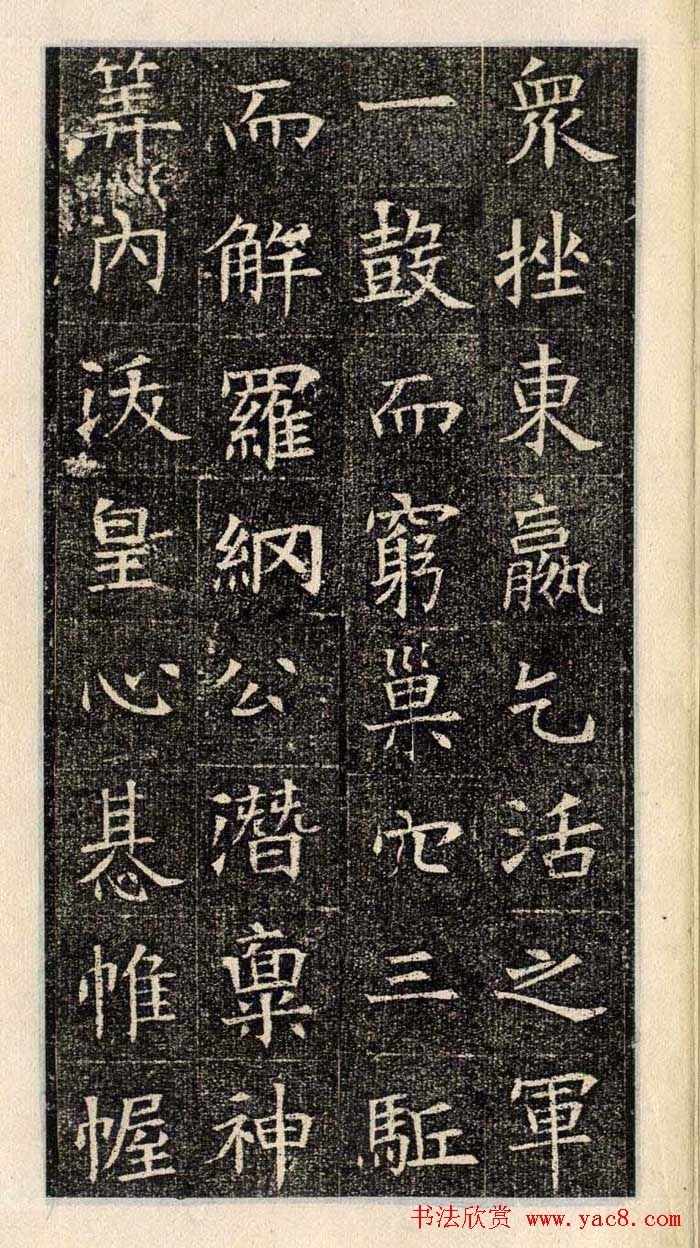 眾挫東嬴乞活之軍
一鼔而窮巢穴三駈
而解羅網公潛稟神
筭内沃皇心惎帷幄
书法欣赏 www.yac8.com